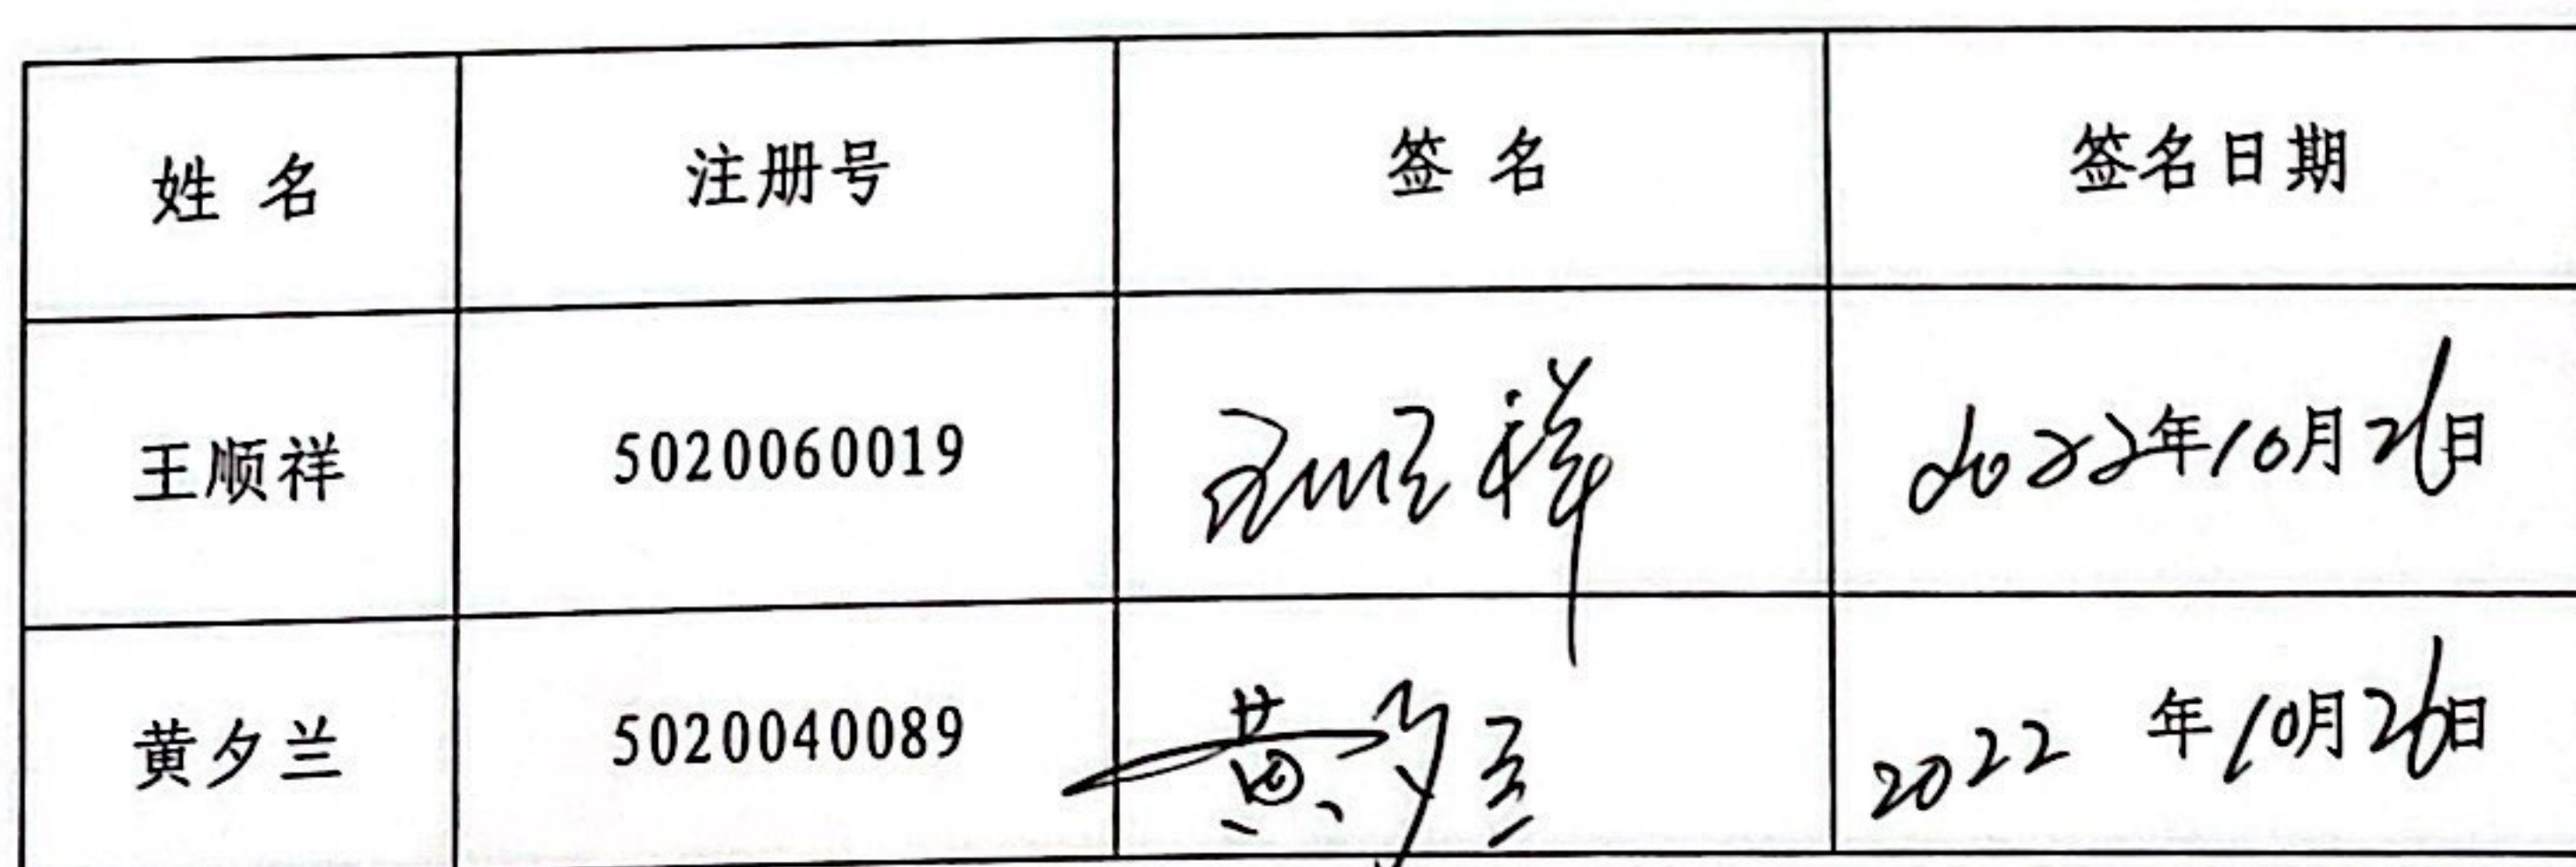 姓 名 注册号 签 名 签名日期
王顺祥 5020060019 王顺祥 2022年10月26日
黄夕兰 5020040089 黄夕兰 2022 年10月26日